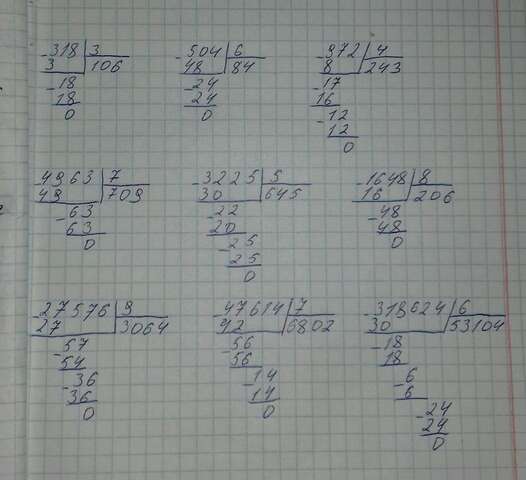 -318 3 -504 6 -972 4
3 106 48 84 8 243
-18 -24 -17
18 24 16
0 0 -12
12
0
-4963 7 -3225 5 -1648 8
49 709 30 645 16 206
-63 -22 -48
63 20 48
0 -25 0
25
0
-27576 9 -47614 7 -318624 6
27 3064 42 6802 30 53104
-57 -56 -18
54 56 18
-36 -14 -6
36 14 6
0 0 -24
24
0